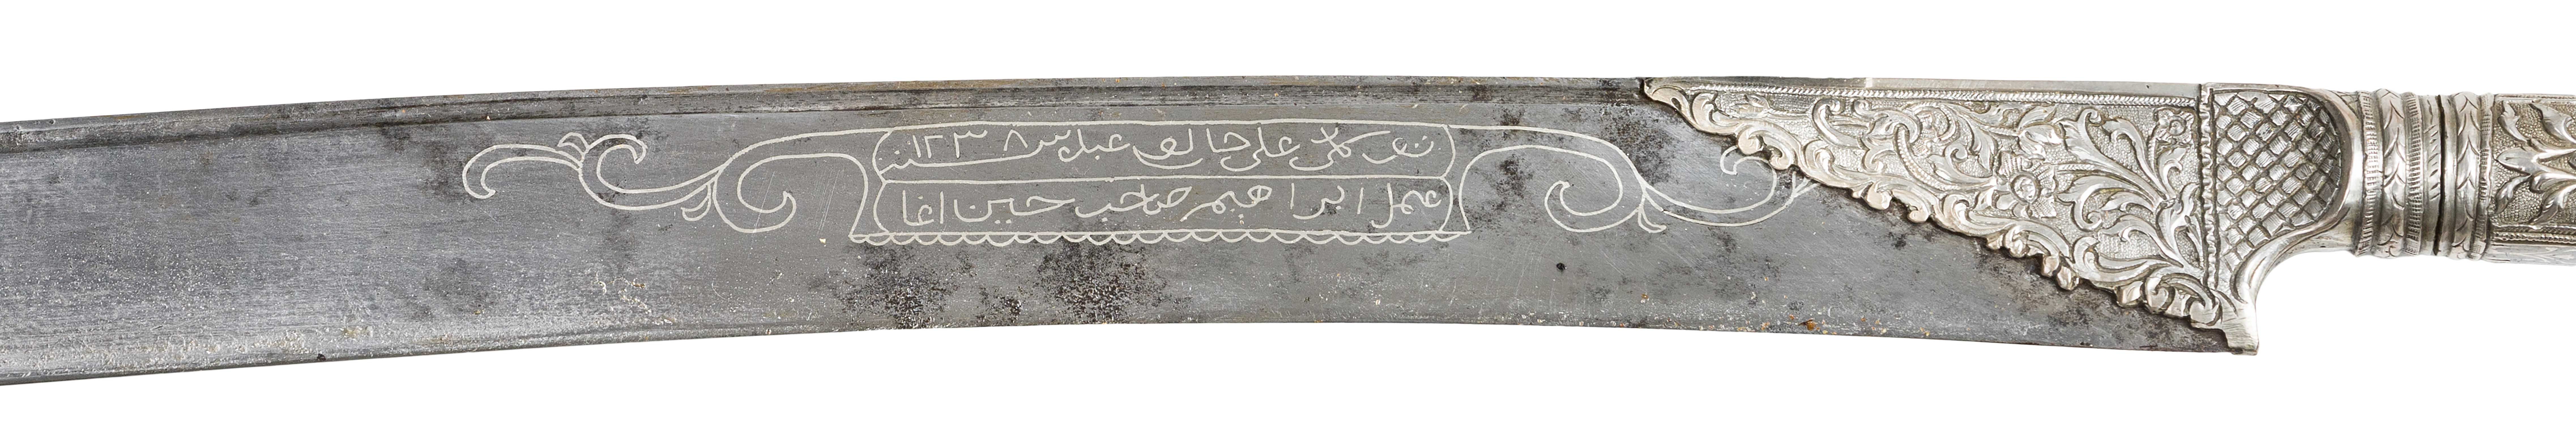 توكلى على خالقى عبدى سنه ١٢٣٨
عمل ابراهيم صاحب حسين اغا